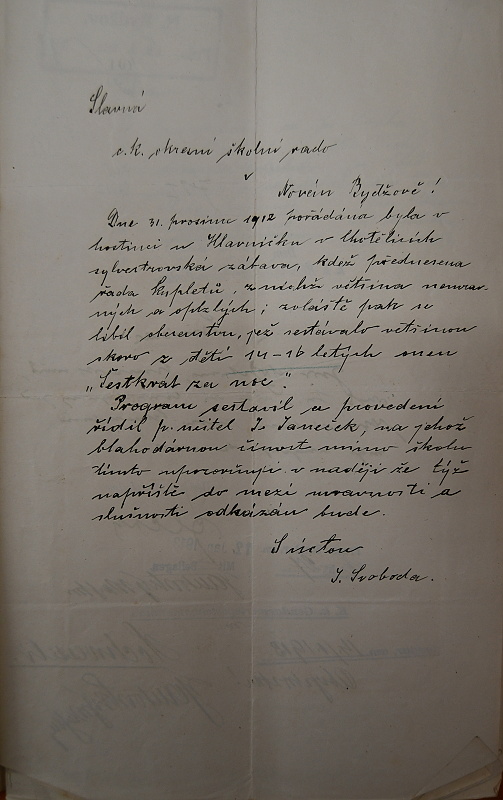 Slavná
c.k. okresní školní rado
v
Novém Bydžově!
Dne 31. prosince 1912 pořádána byla v
hostinci u Hlavničku v Lhotělicích
sylvestrovská zábava, kdež přednesena
řada kupletů, z nichž většina nemrav-
ných a oplzlých; zvláště pak se
líbil obecenstvu, jež sestávalo většinou
skoro z dětí 14-16 letých onen
„Šestkrát za noc".
Program sestavil a provedení
řídil p. učitel Janeček, na jehož
blahodárnou činost mimo školu
tímto upozorňuji v naději že týž
napříště do mezí mravnosti a
slušnosti odkázán bude.
S úctou
J. Svoboda.